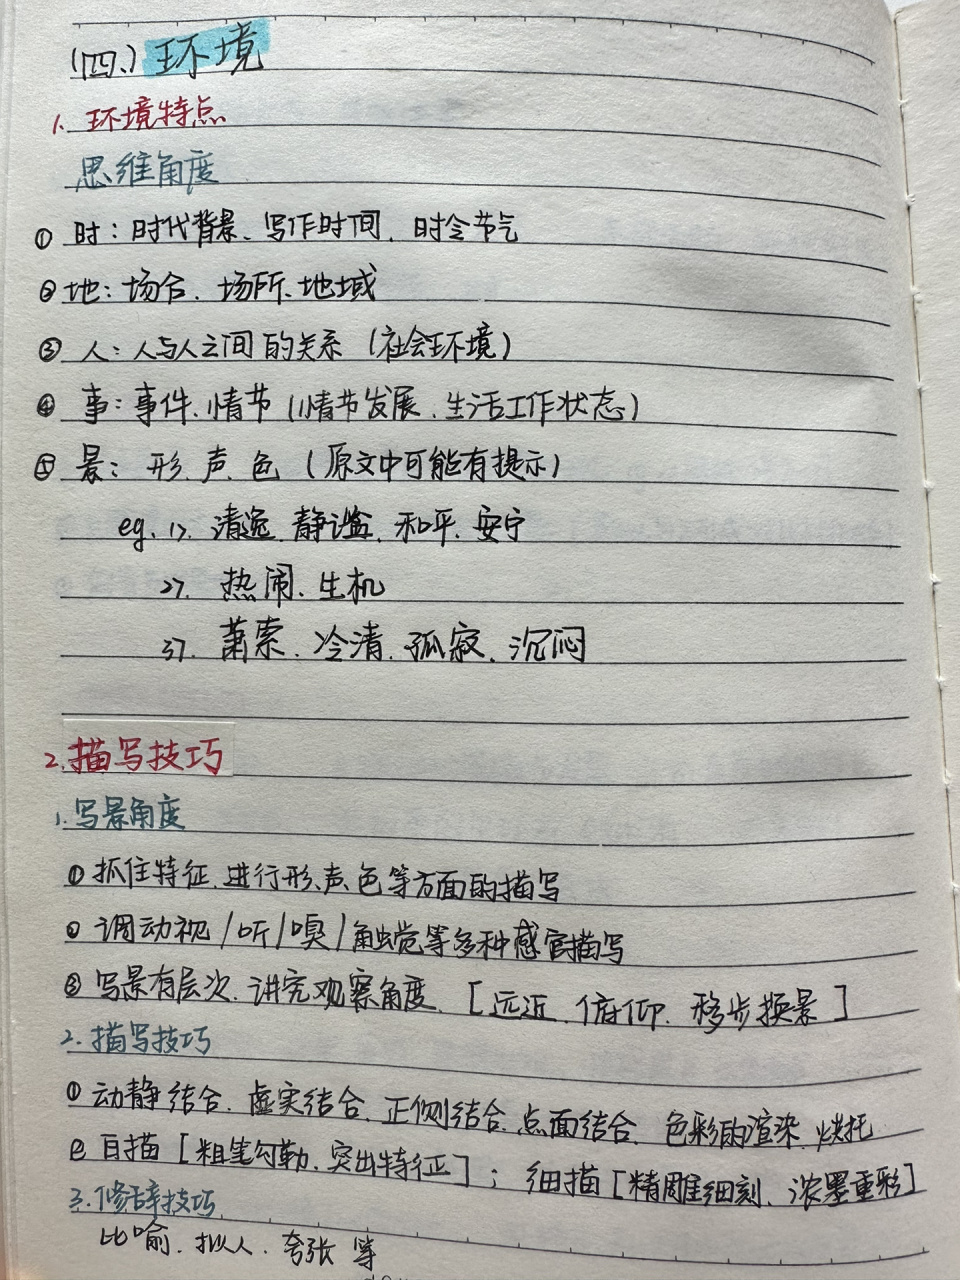 (四、)环境
1、环境特点
思维角度
① 时：时代背景、写作时间、时令节气
② 地：场合、场所、地域
③ 人：人与人之间的关系（社会环境）
④ 事：事件、情节（情节发展、生活工作状态）
⑤ 景：形、声、色（原文中可能有提示）
eg、1>、清逸、静谧、和平、安宁
2>、热闹、生机
3>、萧索、冷清、孤寂、沉闷
2、描写技巧
1、写景角度
① 抓住特征、进行形、声、色等方面的描写
② 调动视/听/嗅/触觉等多种感官描写
③ 写景有层次、讲究观察角度、[远近、俯仰、移步换景]
2、描写技巧
① 动静结合、虚实结合、正侧结合、点面结合、色彩的渲染、烘托
② 白描[粗笔勾勒、突出特征]；细描[精雕细刻、浓墨重彩]
3、修辞技巧
比喻、拟人、夸张 等